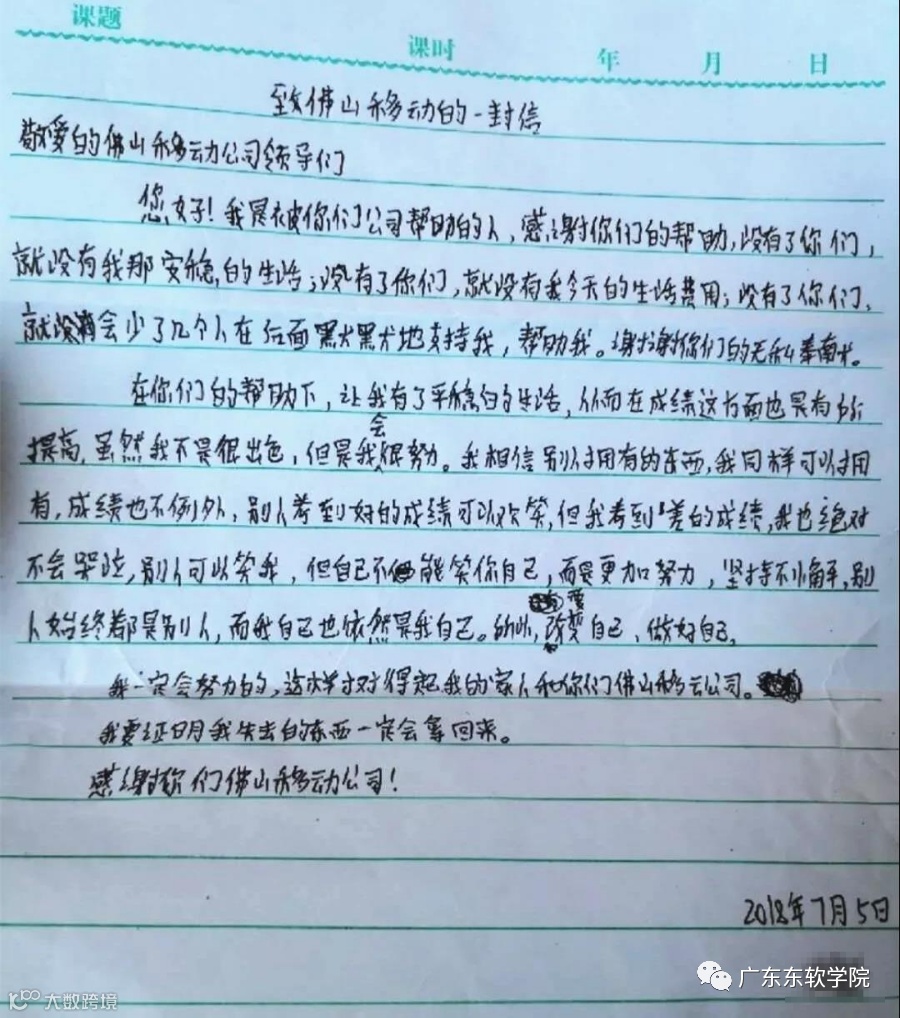 课题
课时 年 月 日
致佛山移动的一封信
敬爱的佛山移动公司领导们
您好!我是被你们公司帮助的人,感谢你们的帮助,没有了你们,
就没有我那安稳的生活;没有了你们,就没有我今天的生活费用;没有了你们,
就会少了几个人在后面默默地支持我,帮助我。谢谢你们的无私奉南大。
在你们的帮助下,让我有了平稳的生活,从而在成绩这方面也是有所
提高,虽然我不是很出色,但是我会很努力。我相信别人拥有的东西,我同样可以拥
有,成绩也不例外,别人考到好的成绩可以欢笑,但我考到差的成绩,我也绝对
不会哭泣,别人可以笑我,但自己不能笑你自己,而是更加努力,坚持不懈,别
人始终都是别人,而我自己也依然是我自己。所以,改变自己,做好自己,
我一定会努力的,这样才对得起我的家人和你们佛山移动公司。
我要证明我失去的东西一定会拿回来。
感谢你们佛山移动公司!
2018年7月5日
广东东软学院
大数跨境